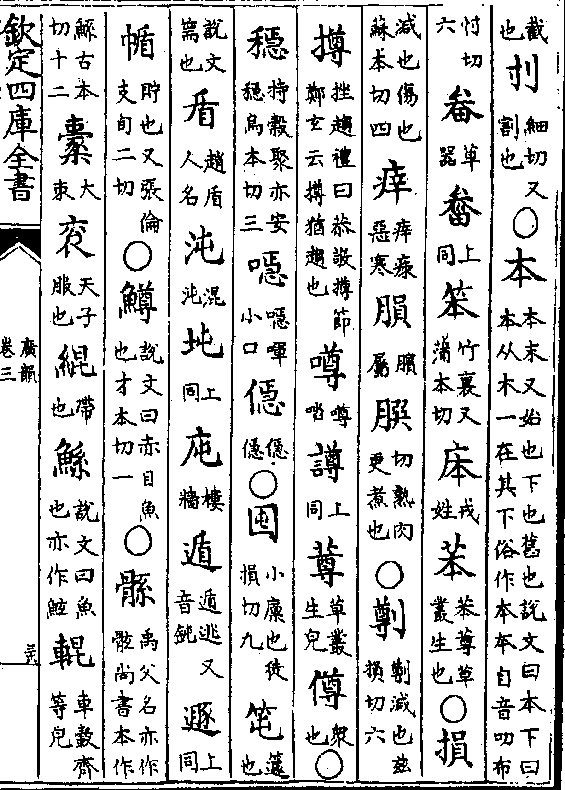 截也刌細切又割也○本本末又始也下也舊也說文曰本下曰本从木一在其下俗作夲夲自音叨布
忖切六畚草器㽥上同笨竹裏又蒲本切㡷戎姓苯苯䔿草叢生也○損
減也傷也蘇本切四㾕㾕瘶惡寒䐣膹屬䐊切熟肉更煮也○劕劕減也茲損切六
撙挫趨禮曰恭敬撙節鄭玄云撙猶趨也噂噂㗳譐上同䔿草叢生皃僔衆也○
穩持穀聚亦安穩烏本切三㗃㗃㖧小口㒚㒚㒚○囤小廩也徒損切九笹籧也
說文篅也盾趙盾人名沌混沌坉上同庉樓牆遁遁逃又音鈍遯上同
㡒貯也又張倫支旬二切○鱒說文曰赤目魚也才本切一○鯀禹父名亦作骸尚書本作
鯀古本切十二㯻大束袞天子服也緄帶也鯀說文曰魚也亦作鯶輥車轂齊等皃
欽定四庫全書
廣韻
卷三